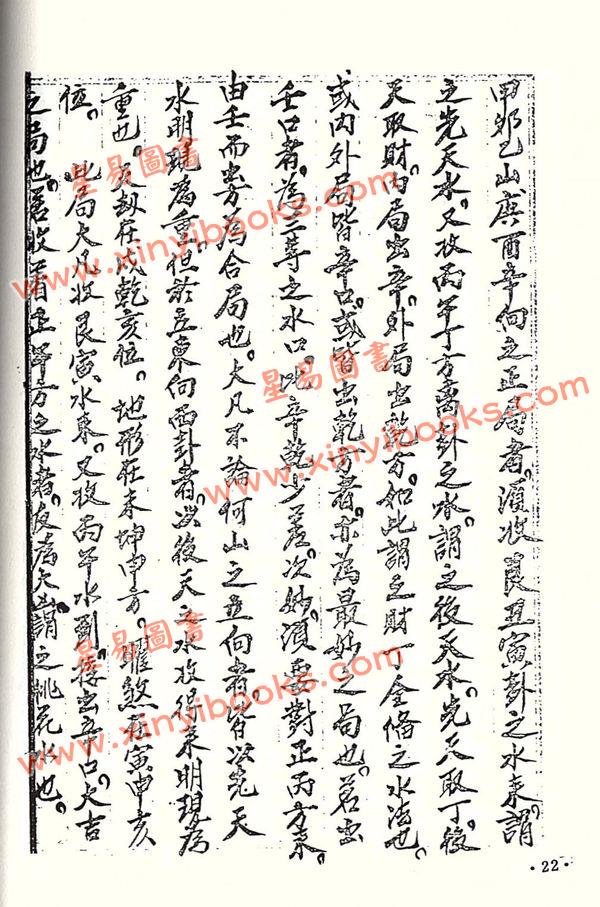 甲卯乙山庚酉辛向之正局者。須收艮丑寅卦之水來。謂
之先天水。又收丙午丁方離卦之水。謂之後天水。先天取丁。後
天取財。內局出辛。外局出乾方。如此謂之財丁全備之水法也。
或內外局皆辛口。或皆出乾方者。亦為最妙之局也。若出
壬口者。為三等之水口。比辛乾少差。次妙。須要對正丙方來。
由壬而出方為合局也。大凡不論何山之立向者。皆以先天
水明現為重。但於立東向西卦者。以後天之水收得來明現為
重也。劫在戌乾亥位。地形在未坤申方。曜煞在寅申亥
位。此局大凡收艮寅水來。又收丙午水到。後出口。大吉
之局也。若收正午方之水者。反為大凶。謂之桃花水也。
星易圖書
www.xinyibooks.com
星易圖書
www.xinyibooks.com
星易圖書
www.xinyibooks.com
·22·